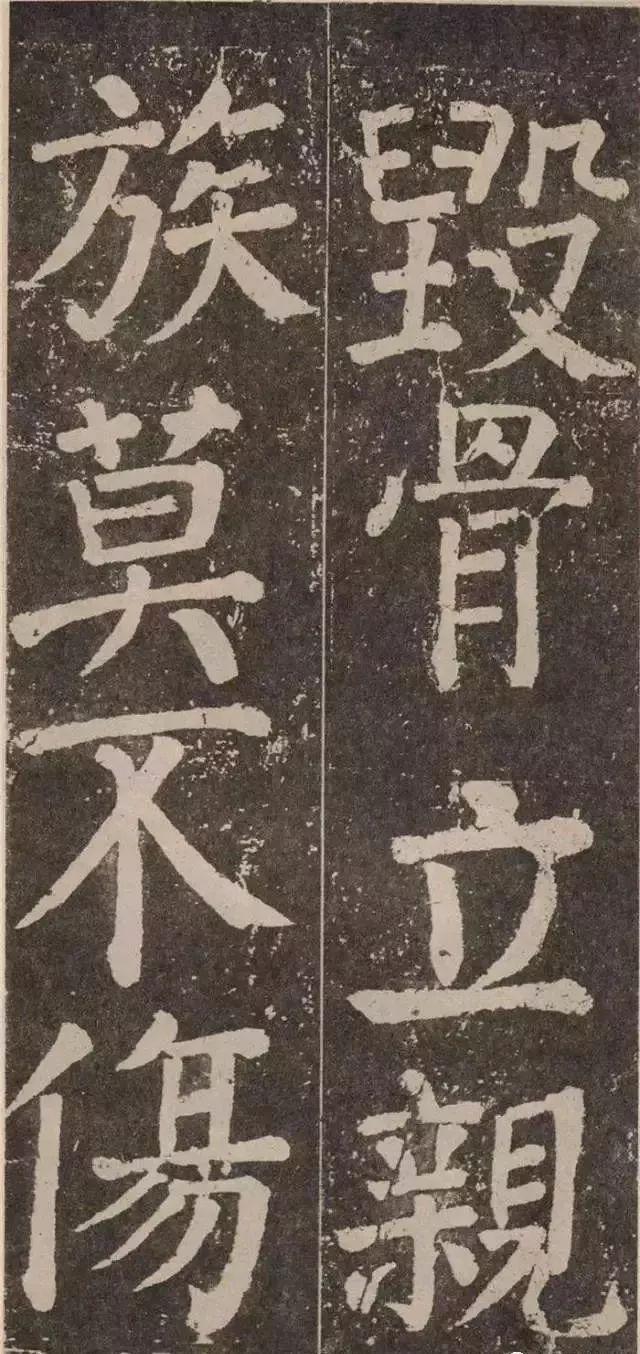 毀骨立親
族莫不傷